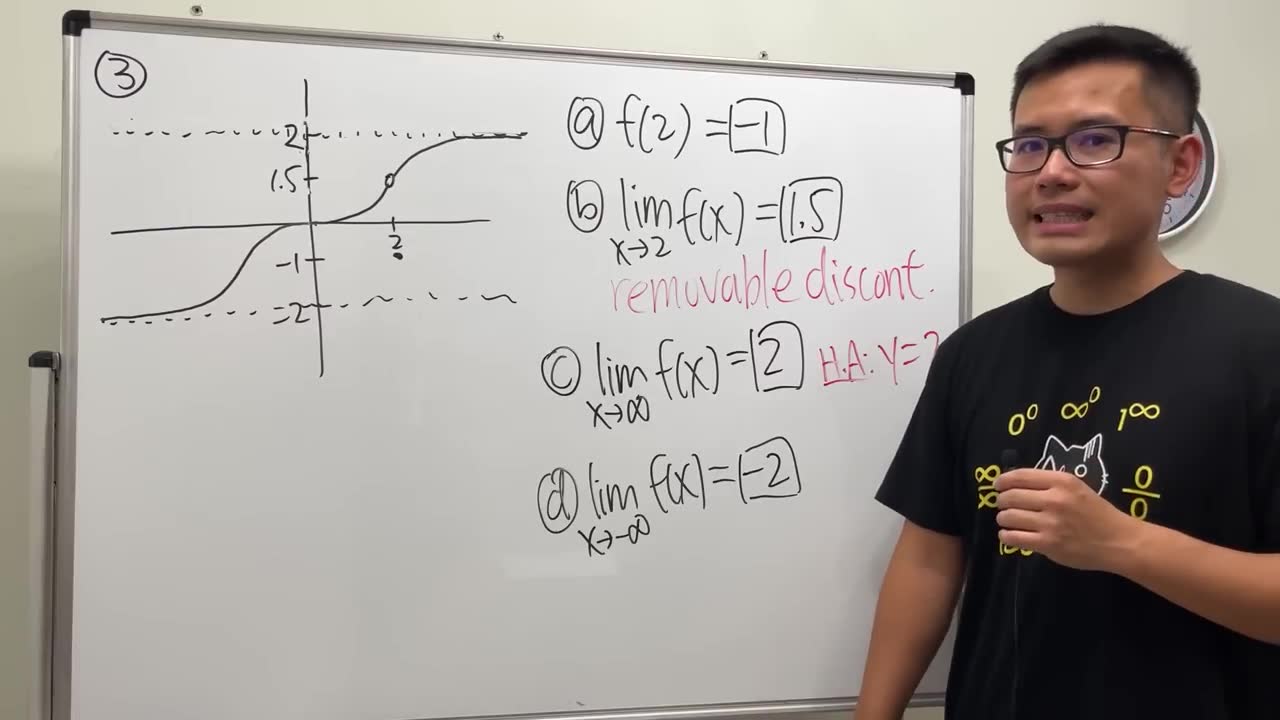 ③
2
1.5
2
-1
-2
ⓐ f(2) = -1
ⓑ lim x→2 f(x) = 1.5
removable discont.
ⓒ lim x→∞ f(x) = 2 H.A: y=2
ⓓ lim x→-∞ f(x) = -2
0⁰ ∞⁰ 1^∞
∞/∞ 0/0